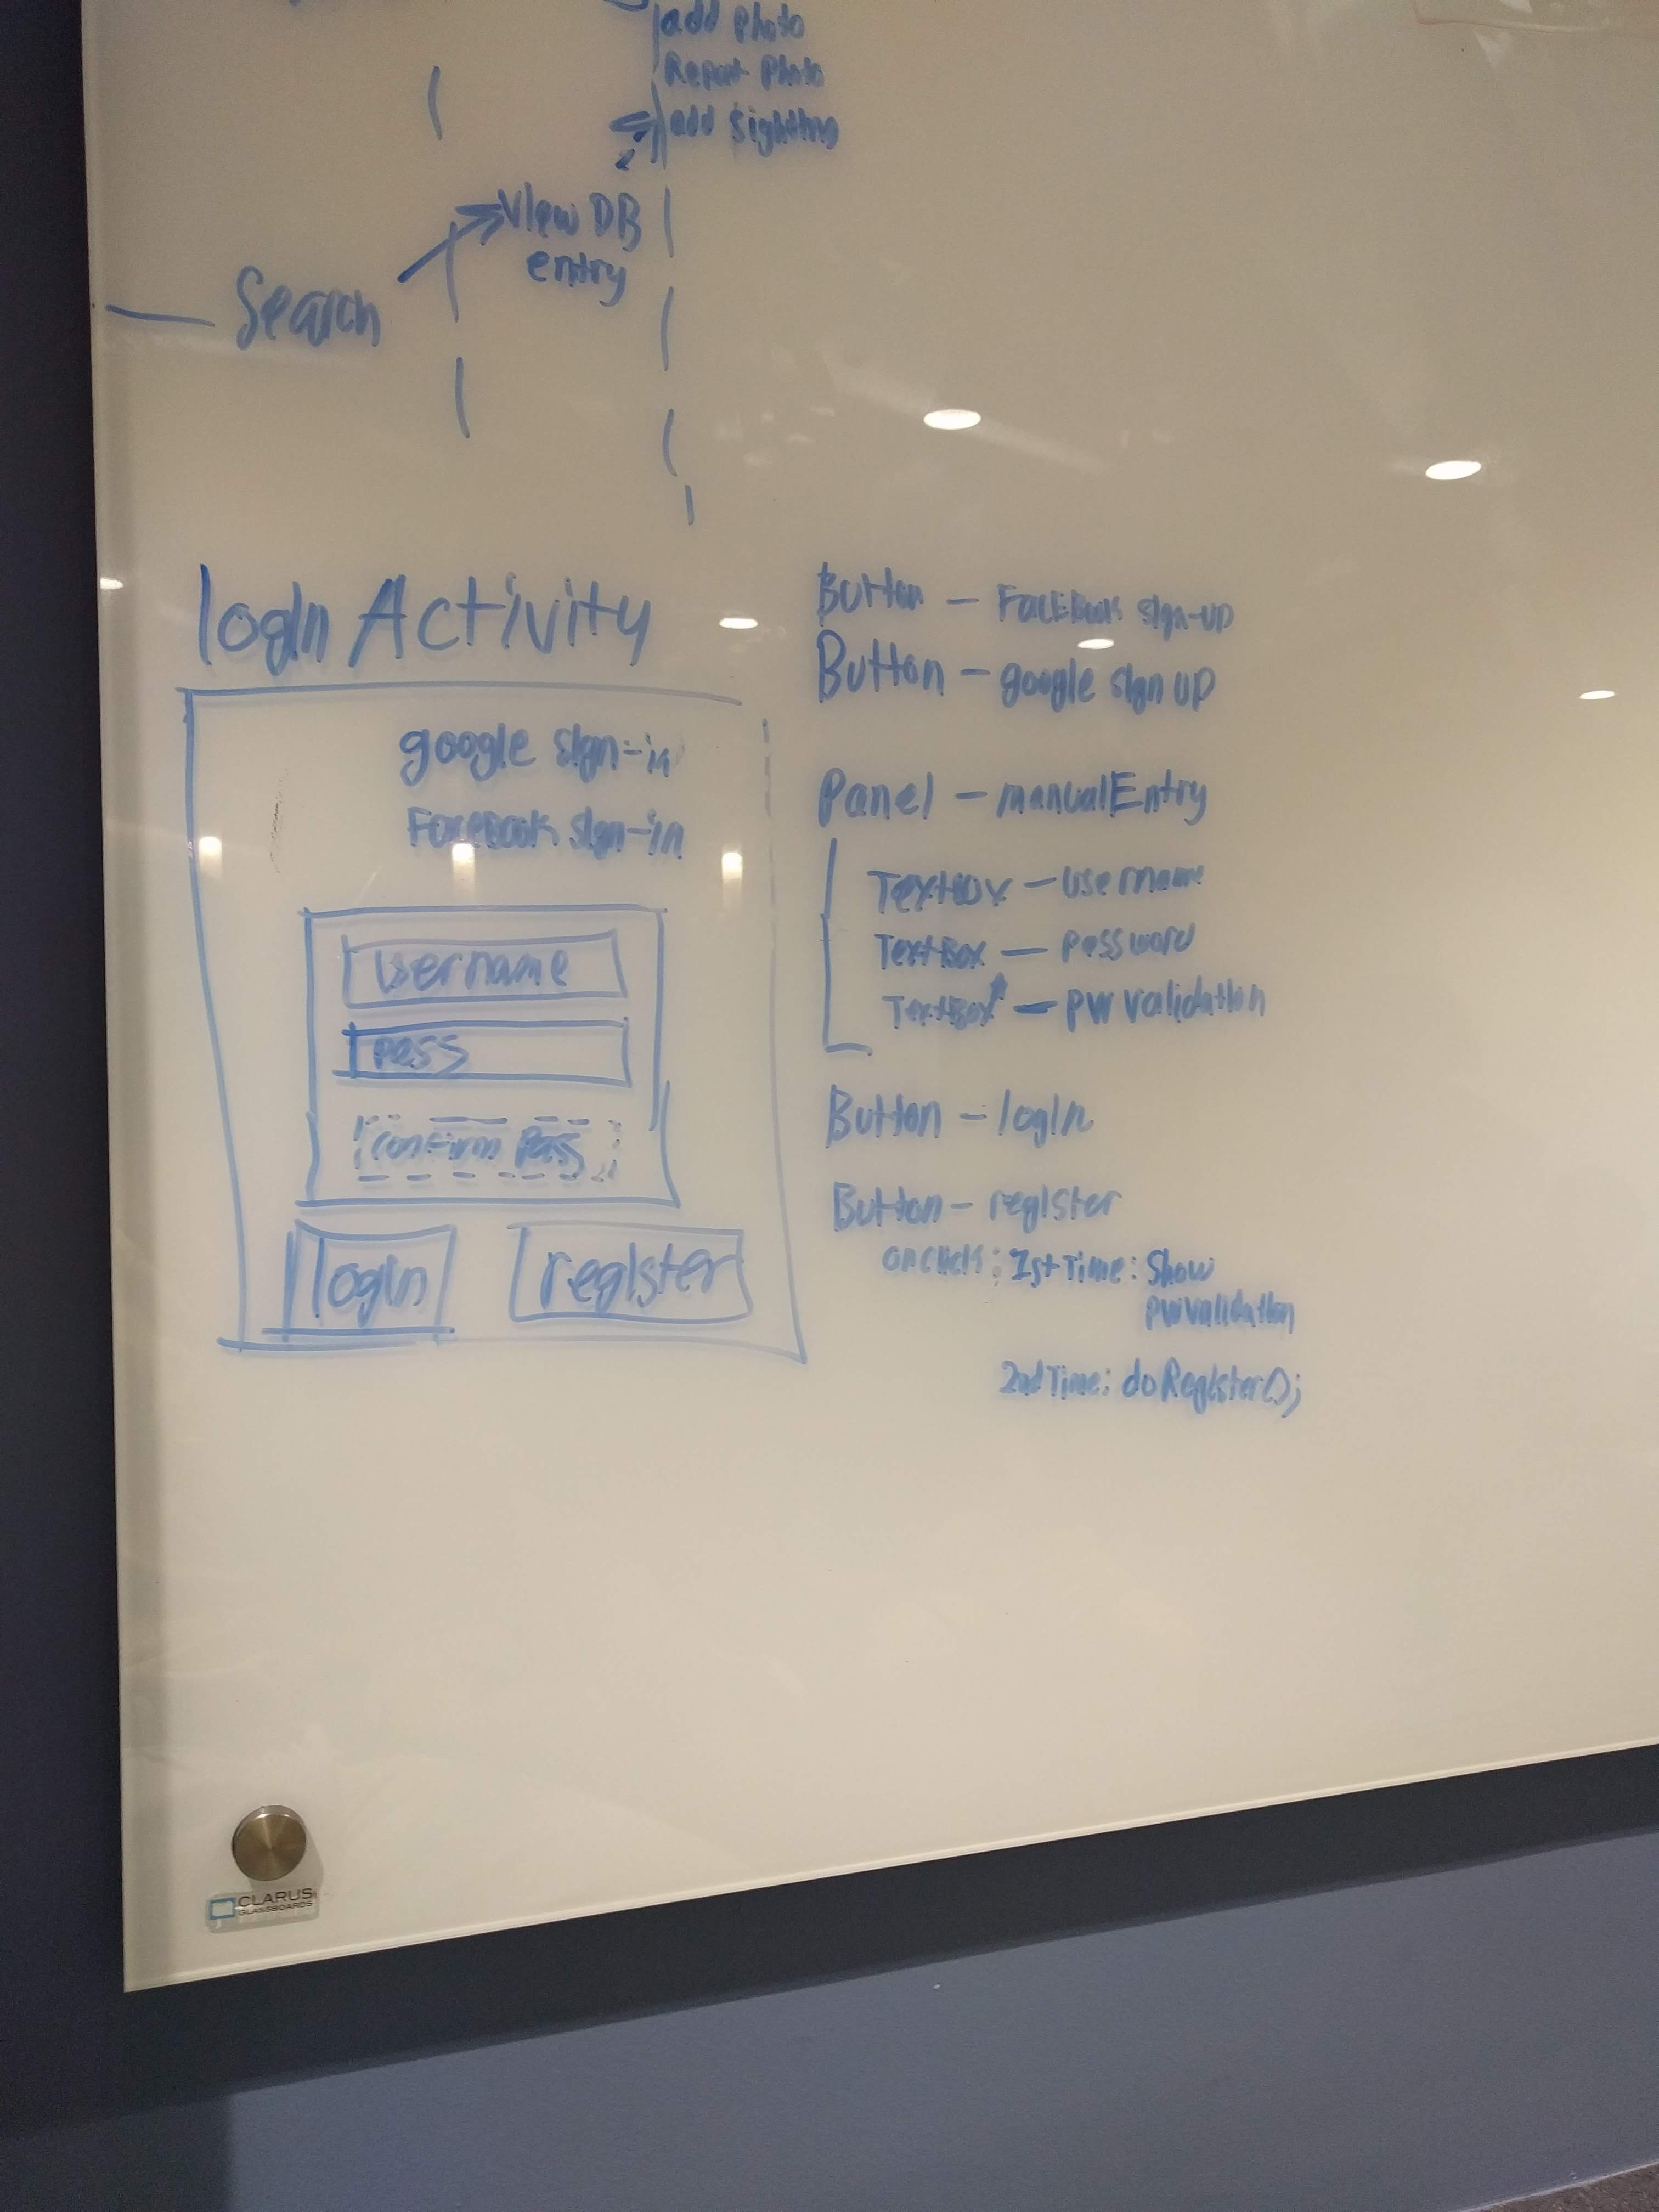 add photo
Report Photo
add sighting
View DB
entry
Search
logIn Activity
google sign-in
FaceBook sign-in
username
pass
confirm pass
login
register
Button - FaceBook sign-up
Button - google sign up
Panel - manualEntry
TextBox - username
TextBox - password
TextBox* - pw validation
Button - logIn
Button - register
onclick: 1st Time: Show
pwvalidation
2nd Time: doRegister();
CLARUS
GLASSBOARDS